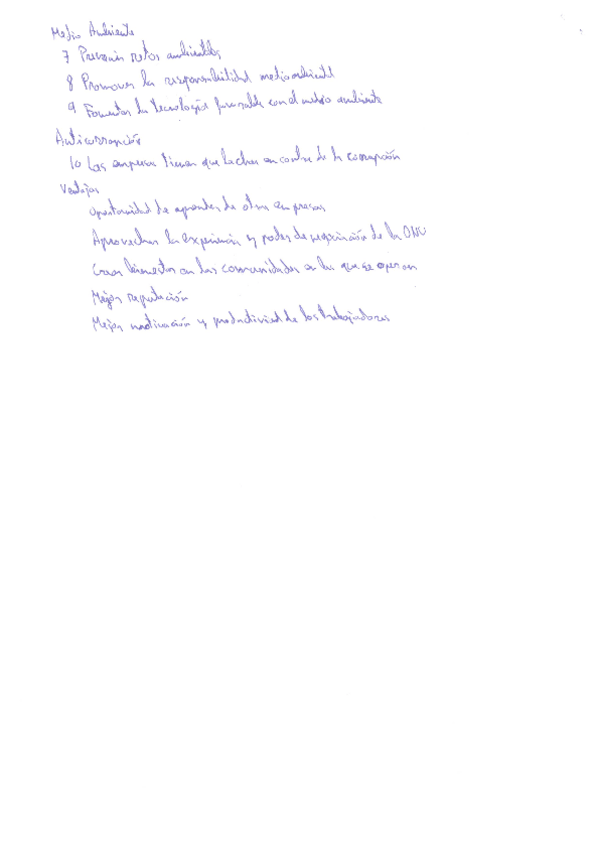 Medio Ambiente
7 Prevenir retos ambientales
8 Promover la responsabilidad medioambiental
9 Fomentar la tecnología favorable con el medio ambiente
Anticorrupción
10 Las empresas tienen que luchar en contra de la corrupción
Ventajas
Oportunidad de aprender de otras empresas
Aprovechar la experiencia y poder de negociación de la ONU
Crear bienestar en las comunidades en las que se operan
Mejor reputación
Mejor motivación y productividad de los trabajadores